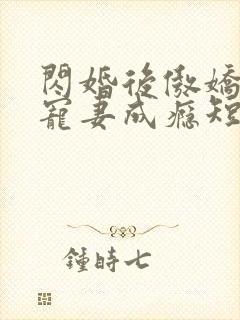 閃婚後傲嬌
寵妻成癮短
鍾時七